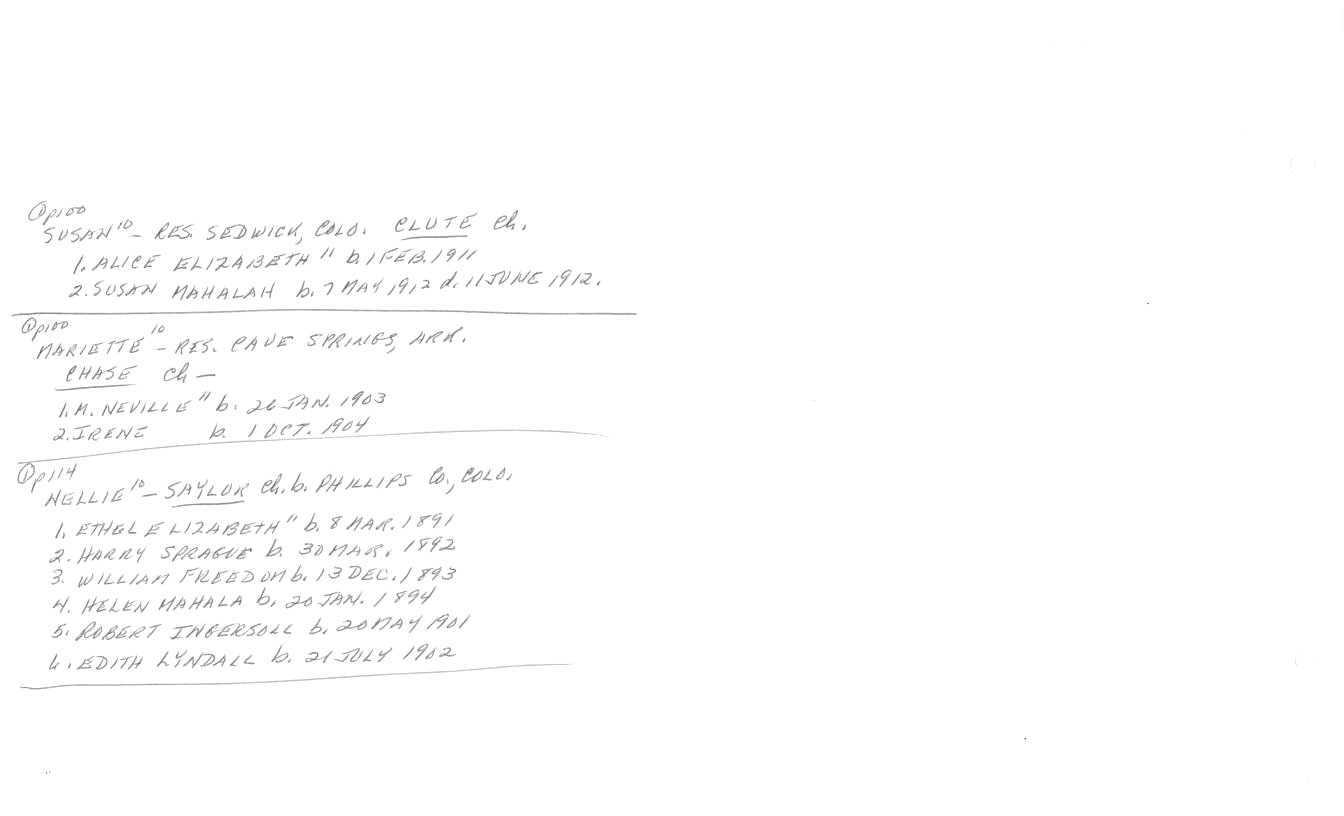 ① p100
SUSAN¹⁰ – RES. SEDWICK, COLO. CLUTE Ch.
1. ALICE ELIZABETH¹¹ b. 1 FEB. 1911
2. SUSAN MAHALAH b. 7 MAY 1912 d. 11 JUNE 1912.
① p100
MARIETTE¹⁰ – RES. CAVE SPRINGS, ARK.
CHASE Ch –
1. M. NEVILLE¹¹ b. 26 JAN. 1903
2. IRENE b. 1 OCT. 1904
① p114
NELLIE¹⁰ – SAYLOR Ch. b. PHILLIPS Co., COLO.
1. ETHEL ELIZABETH¹¹ b. 8 MAR. 1891
2. HARRY SPRAGUE b. 30 MAR. 1892
3. WILLIAM FREEDOM b. 13 DEC. 1893
4. HELEN MAHALA b. 20 JAN. 1894
5. ROBERT INGERSOLL b. 20 MAY 1901
6. EDITH LYNDALL b. 21 JULY 1902